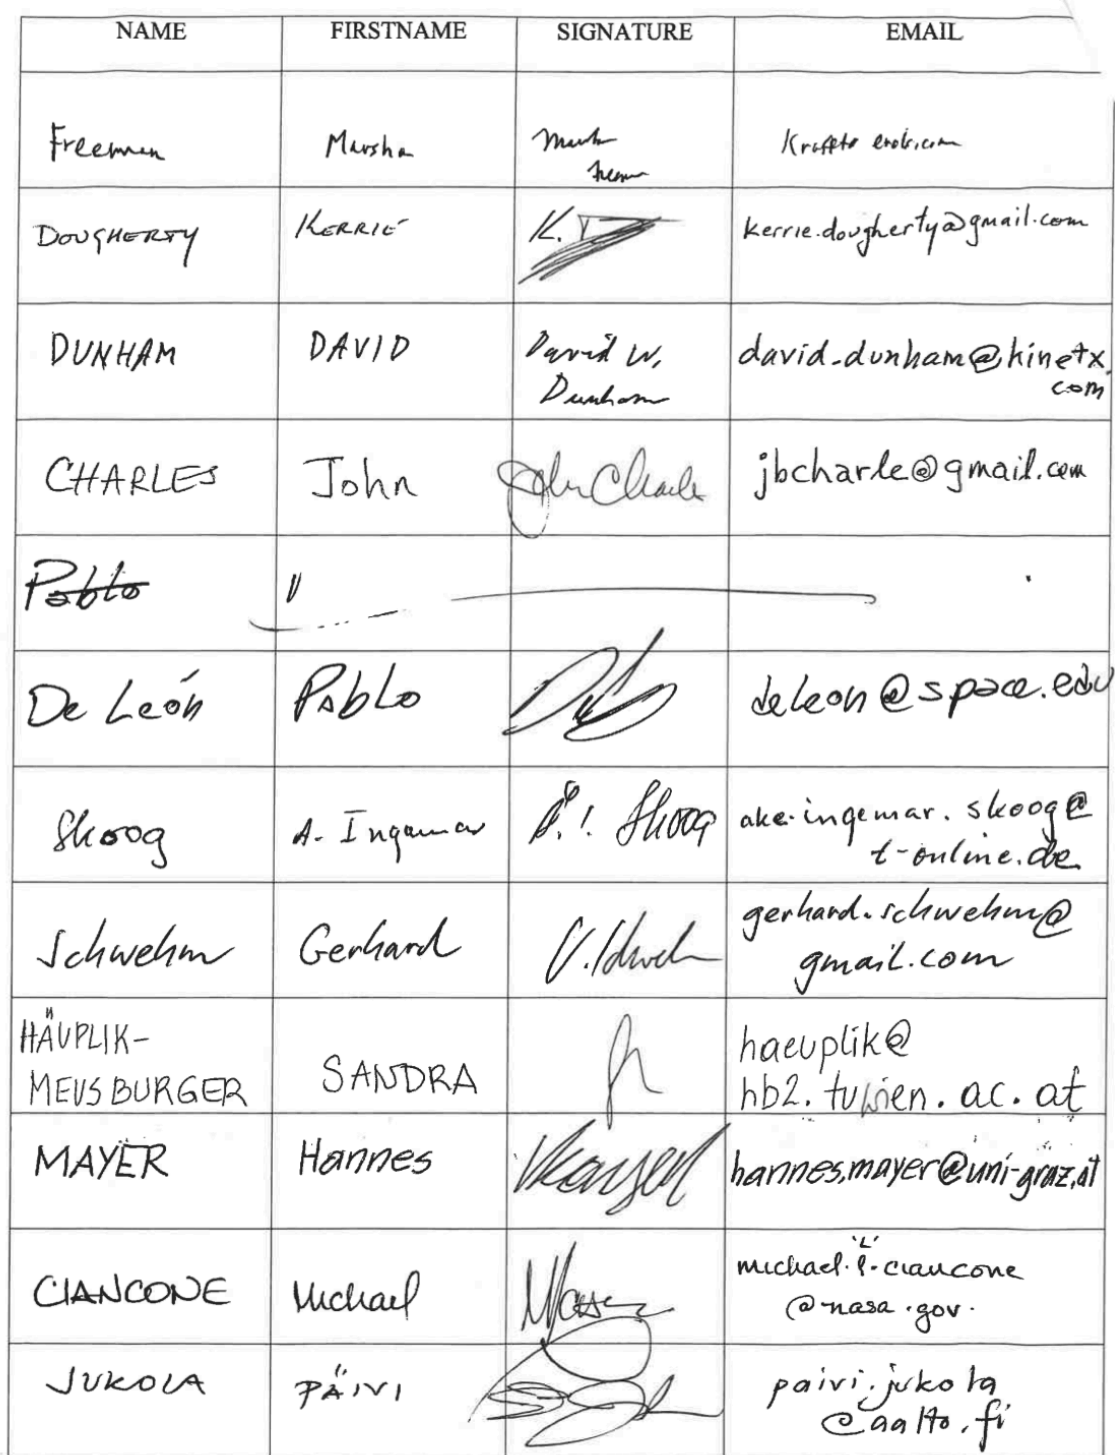 NAME FIRSTNAME SIGNATURE EMAIL
Freeman Marsha
Freeman
DOUGHERTY KERRIE K. D kerrie.dougherty@gmail.com
DUNHAM DAVID David W. david.dunham@kinetx.
Dunham com
CHARLES John John Charles jbcharle@gmail.com
Pablo
De León Pablo deleon@space.edu
Skoog A. Ingemar Å. I. Skoog ake.ingemar.skoog@
t-online.de
Schwehm Gerhard gerhard.schwehm@
gmail.com
HÄUPLIK- haeuplik@
MEUSBURGER SANDRA hb2.tuwien.ac.at
MAYER Hannes Mayer hannes.mayer@uni-graz.at
'L'
CIANCONE Michael michael.l.ciancone
@nasa.gov.
JUKOLA PÄIVI paivi.jukola
@aalto.fi